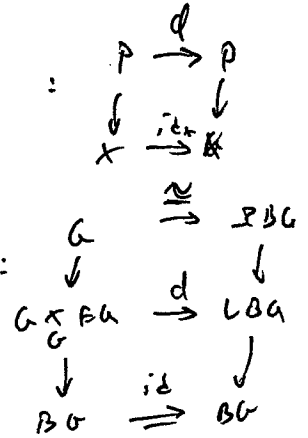 d
: P → P
↓ ↓
X id_X → X
≅
G → ΩBG
: ↓ ↓
G ×_G EG d → LBG
↓ ↓
BG id → BG